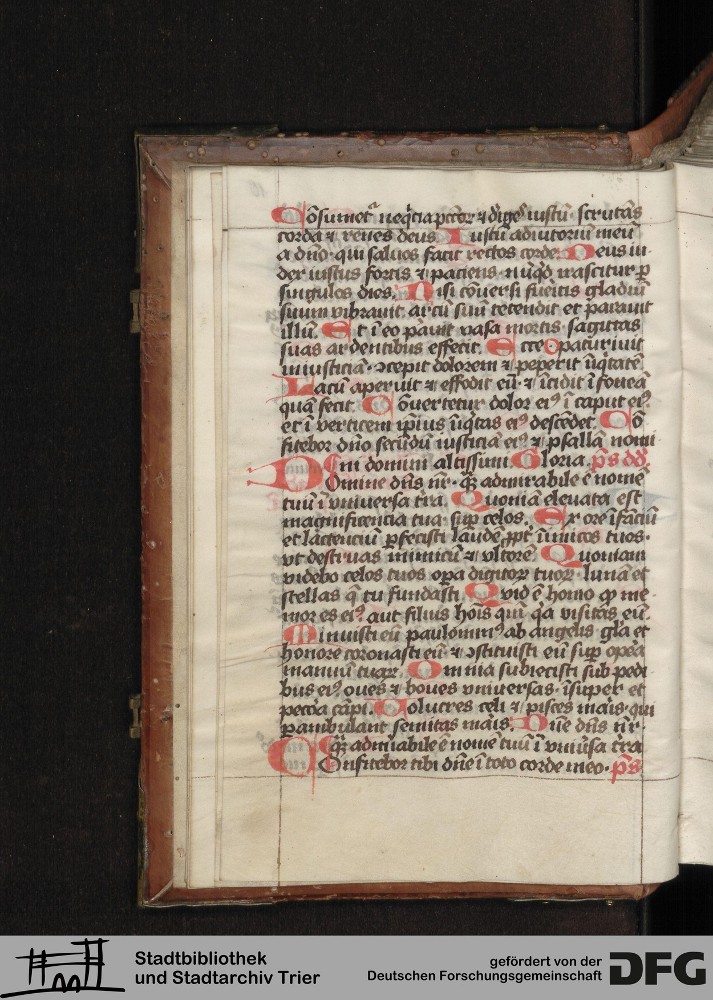 Cōsumet᷑ neq̇cia pctōꝝ ⁊ dꝰiges iustū scrutās
corda ⁊ renes deus Iustū adiutoriū meū
a dño qui saluos facit rectos corde Deus iu
dex iustus fortis ⁊ paciens nūq̇d irascitur ꝑ
singulos dies Nisi cōuersi fūeritis gladiū
suum vibrauit arcū suū tetendit et parauit
illū Et ī eo pauit vasa mortis sagittas
suas ardentibus effecit Ecce parturiuit
iniusticiā ɔcepit dolorem ⁊ peperit iīq̇tatē
Lacū aperuit ⁊ effodit eū ⁊ īcidit ī foueā
quā fecit Cōuertetur dolor eiꝰ ī caput eiꝰ
et ī verticem ip̄ius iīq̇tas eiꝰ descēdet Cō
fitebor dño secūdū iusticiā eiꝰ ⁊ psallā nomī
ni domini altissimi Gloria ps dd
Domine dñs nr̄ q̄ admirabile ē nomē
tuū ī vniuersa t̄ra Quoniā eleuata est
magnificencia tua suꝑ celos Ex ore īfāciū
et lactenciū ꝑfecisti laudē ꝓpt̄ inīmicos tuos
vt destruas inimicū ⁊ vltorē Quoniam
videbo celos tuos oꝑa digitoꝝ tuoꝝ lunā et
stellas q̄ tu fundasti Quid ē homo ꝙ me
mor es eiꝰ aut filius hoīs qm̄ q̄a visitas eū
Minuisti eū paulominꝰ ab angelis gl̄a et
honore coronasti eū ⁊ ɔstituisti eū suꝑ oꝑa
manuū tuaꝝ Omnia subiecisti sub pedi
bus eiꝰ oues ⁊ boues vniuersas īsuper et
pecōa cāpi Uolucres celi ⁊ pisces mar̄is qui
ꝑambulant semitas mar̄is Dūe dñs nr̄
q̄ admi̇abile ē nomē tuū ī vniūsa t̄ra
Confitebor tibi dñe ī toto corde meo ps
Stadtbibliothek
und Stadtarchiv Trier
gefördert von der
Deutschen Forschungsgemeinschaft DFG